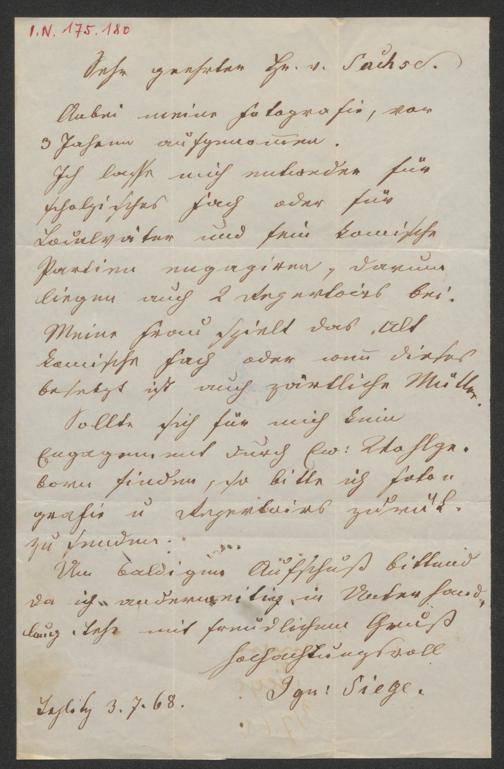 I.N. 175.180
Sehr geehrter Hr. v. Sachse.
Anbei meine Fotografie, vor
3 Jahren aufgenommen.
Ich lasse mich entweder für
Fach oder für
und fein komische
Partien engagiren, darum
liegen auch 2 Repertoirs bei.
Meine Frau spielt das Alt
komische Fach oder wenn dieses
besetzt ist auch zärtliche Mütter.
Sollte sich für mich kein
Engagement durch Ew: Wohlge-
born finden, so bitte ich Foto-
grafie u Repertoirs zurück-
zu senden.
Um baldigen Aufschluß bittend
da ich anderweitig in Unterhand-
lung stehe mit freundlichem Gruß
hochachtungsvoll
Ign: Siege.
3.7.68.